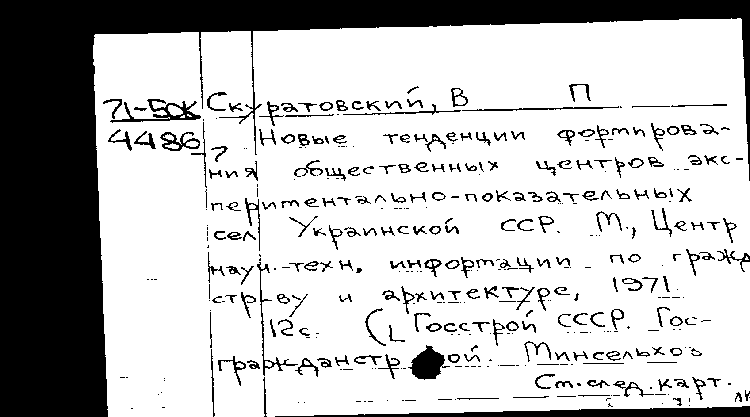 71-БОК Скуратовский, В П
4486 Новые тенденции формирова-
ния общественных центров экс-
периментально-показательных
сел Украинской ССР. М., Центр
науч.-техн. информации по гражд
стр-ву и архитектуре, 1971.
12с. (Госстрой СССР. Гос-
гражданстрой. Минсельхоз
См.след.карт.